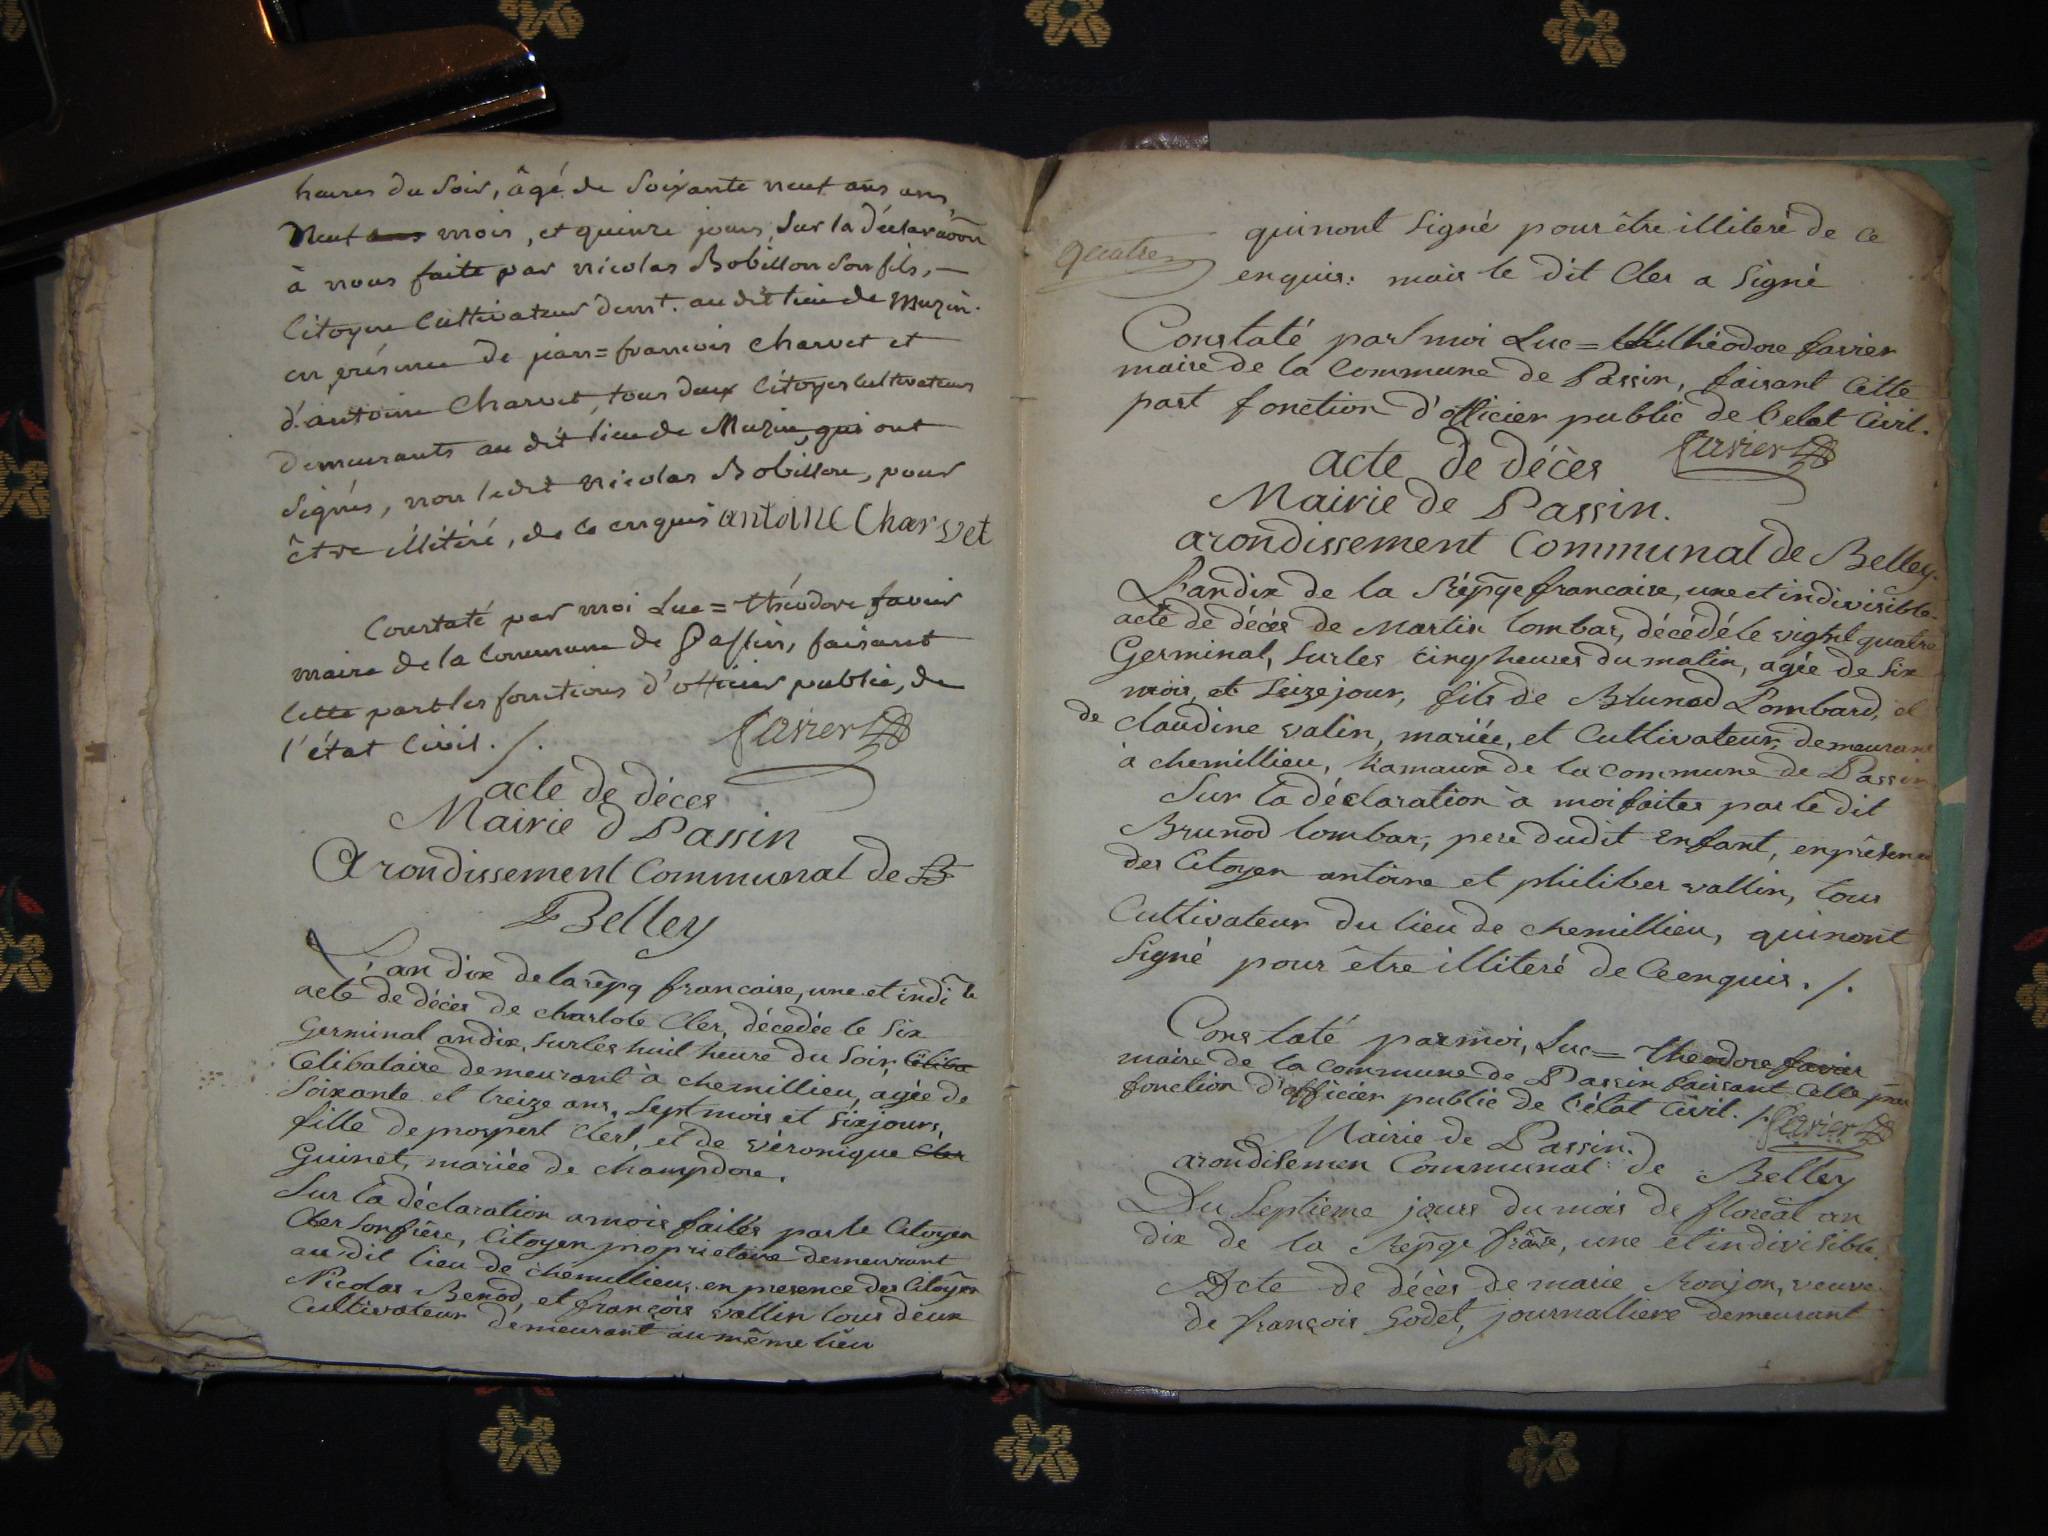 heures du soir, âgé de soixante neuf ans ans,
Neuf ans mois, et quinze jours, Sur la déclaraõn
à nous faite par nicolas Bobillon son fils, —
Citoyen Cultivateur demt. au dit lieu de Muzin.
en présence de jean=francois charvet et
d'antoine Charvet, tous deux Citoyes Cultivateurs
demeurants au dit lieu de Muzin, qui ont
signés, non ledit nicolas Bobillon, pour
être illitéré, de ce enquis antoine Charvet
Constaté par moi Luc=théodore favier
maire de la Commune de Passin, faisant
Cette part les fonctions d'officier public, de
l'état Civil . /.
favier
acte de déces
Mairie d Passin
Arondissement Communal de B
Belley
L'an dix de la rẽpq francaise, une et indi le
acte de décès de charlote Cler, décedée le six
Germinal an dix, sur les huit heure du soir, Céliba
Célibataire demeurant à chemillieu, agée de
Soixante et treize ans, sept mois et six jours,
fille de prospert Clert, et de véronique Cler
Guinet, mariée de champdore.
Sur la déclaration a mois faites par le Citoyen
Cler son frère, Citoyen proprietaire demeurant
au dit lieu de chemillieu, en presence des Citoyen
Nicolas Benod, et françois vallin tous deux
Cultivateur demeurant au même lieu
quatre
qui nont signé pour être illiteré de ce
enquis: mais le dit Cler a signé
Constaté par moi Luc= théodore favier
maire de la Commune de Passin, faisant Cette
part fonction d'officier public de l'etat Civil.
favier
acte de décès
Mairie de Passin.
arondissement Communal de Belley.
L'an dix de la Rẽpqe francaise, une et indivisible.
acte de décès de Martin lombar, décédé le vight quatre
Germinal, sur les cinq heures du matin, agée de six
mois, et seize jour, fils de Brunod Lombard, et
de claudine valin, mariée, et Cultivateur, demeurant
à chemillieu, hamaux de la commune de Passin
Sur la déclaration à moi faites par le dit
Brunod lombar, pere dudit Enfant, en présence
des Citoyen antoine et philiber vallin, tous
Cultivateur du lieu de chemillieu, qui nont
signé pour être illiteré de Ce enquis . /.
Constaté par moi, Luc= théodore favier
maire de la commune de Passin faissant Cette part
fonction d'officier public de l'état Civil. /.
favier
Mairie de Passin.
arondisemen Communal de Belley
Du Septième jours du mois de floréal an
dix de la Rẽpqe frãnse, une et indivisible.
Acte de décès de marie Monjon, veuve
de françois Godet, journalliere demeurant